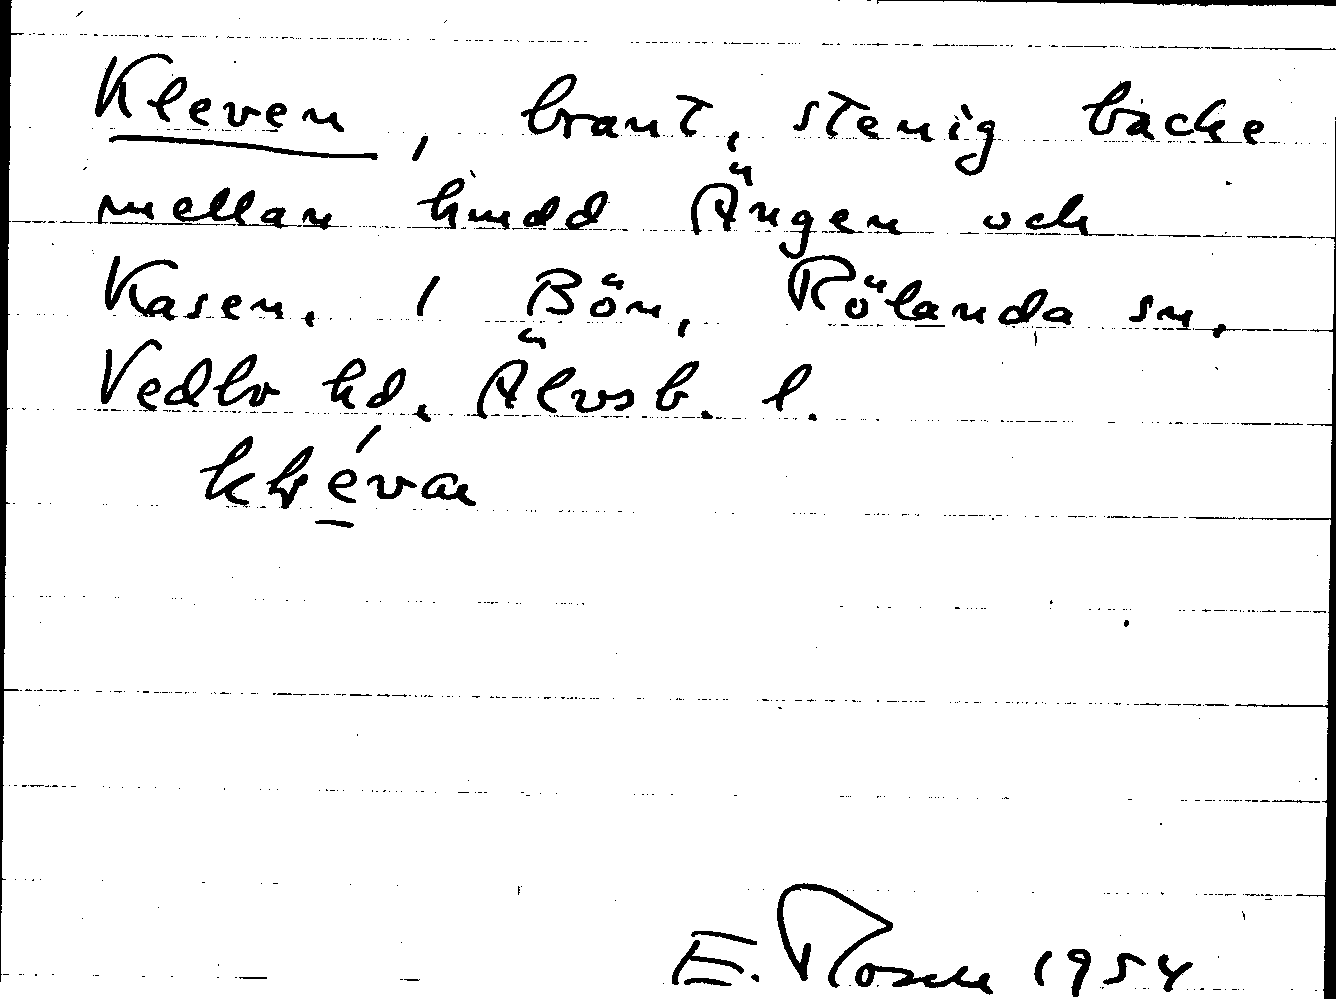 Kleven, brant, stenig backe
mellan hmdd Ängen och
Kasen. I Bön, Rölanda sn,
Vedbo hd, Älvsb. l.
E. Rosell 1954